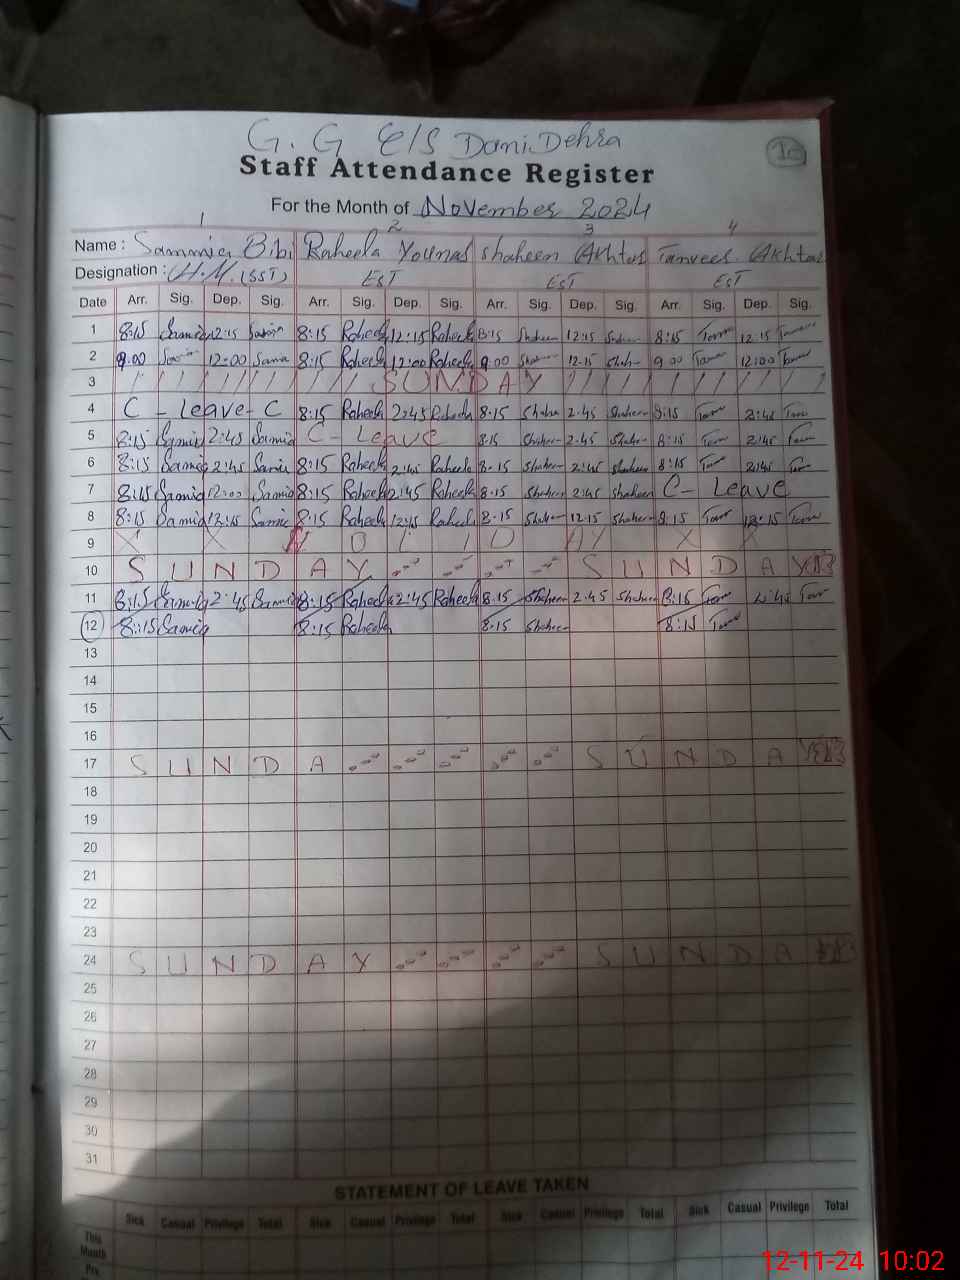 G. G E/S Dani Dehra
10
Staff Attendance Register
For the Month of November 2024
1 2 3 4
Name : Sammia Bibi Raheela Younas Shaheen Akhtar Tanveer Akhtar
Designation : H.M.(SST) EST EST EST
Date Arr. Sig. Dep. Sig. Arr. Sig. Dep. Sig. Arr. Sig. Dep. Sig. Arr. Sig. Dep. Sig.
1 8:15 Samia 12:15 8:15 Raheela 12:15 Raheela 8:15 Shaheen 12:15 8:15 12:15
2 9.00 12:00 Samia 8:15 Raheela 12:00 Raheela 9.00 12.15 9.00 12:00
3 SUNDAY
4 C - Leave - C 8:15 Raheela 2:45 Raheela 8.15 2.45 Shaheen 8:15 2:45
5 8:15 Samia 2:45 Samia C - Leave 8.15 Shaheen 2.45 8:15 2:45
6 8:15 Samia 2:45 8:15 Raheela 2:45 Raheela 8.15 Shaheen 2:45 Shaheen 8:15 2:45
7 8:15 Samia 12:00 Samia 8:15 Raheela 2:45 Raheela 8.15 Shaheen 2:45 Shaheen C - Leave
8 8:15 Samia 12:15 8:15 Raheela 12:15 Raheela 8.15 12.15 Shaheen 8:15 12:15
9 X X H O L I D AY X X
10 S U N D A Y S U N D A Y
11 8:15 Samia 2:45 Samia 8:15 Raheela 2:45 Raheela 8.15 Shaheen 2:45 Shaheen 8:15 2:45
12 8:15 Samia 8:15 Raheela 8.15 Shaheen 8:15
13
14
15
16
17 S U N D A S U N D A
18
19
20
21
22
23
24 S U N D A Y S U N D A
25
26
27
28
29
30
31
STATEMENT OF LEAVE TAKEN
Sick Casual Privilege Total Sick Casual Privilege Total Sick Casual Privilege Total Sick Casual Privilege Total
This
Month
Prv.
12-11-24 10:02